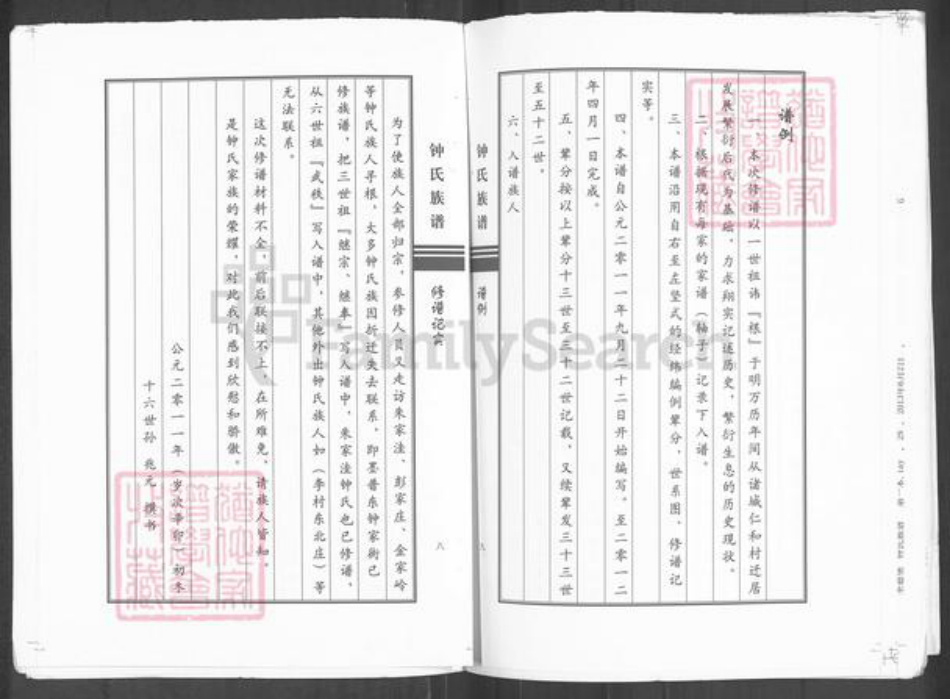 谱例
一、本次修谱以一世祖讳『根』于明万历年间从诸城仁和村迁居
发展繁衍后代为基础，力求翔实记述历史，繁衍生息的历史现状。
二、根据现有每家的家谱（轴子）记录下入谱。
三、本谱沿用自右至左竖式的经纬编例辈分，世系图、修谱记
实等。
四、本谱自公元二零一一年九月二十二日开始编写。至二零一二
年四月一日完成。
五、辈分按以上辈分十三世至三十二世记载，又续辈发三十三世
至五十二世。
六、入谱族人
钟氏族谱 谱例 九
钟氏族谱 修谱记实 八
为了使族人全部归宗，参修人员又走访朱家洼、彭家庄、金家岭
等钟氏族人寻根，大多钟氏族因折迁失去联系，即墨普东钟家街已
修族谱，把三世祖『继宗、继奉』写入谱中，朱家洼钟氏也已修谱，
从六世祖『武秩』写入谱中，其他外出钟氏族人如（李村东北庄）等
无法联系。
这次修谱材料不全，前后联接不上，在所难免，请族人皆知。
是钟氏家族的荣耀，对此我们感到欣慰和骄傲。
公元二零一一年（岁次辛卯）初冬
十六世孙 兆元 撰书
犹他家谱学会藏
犹他家谱学会藏
FamilySearch